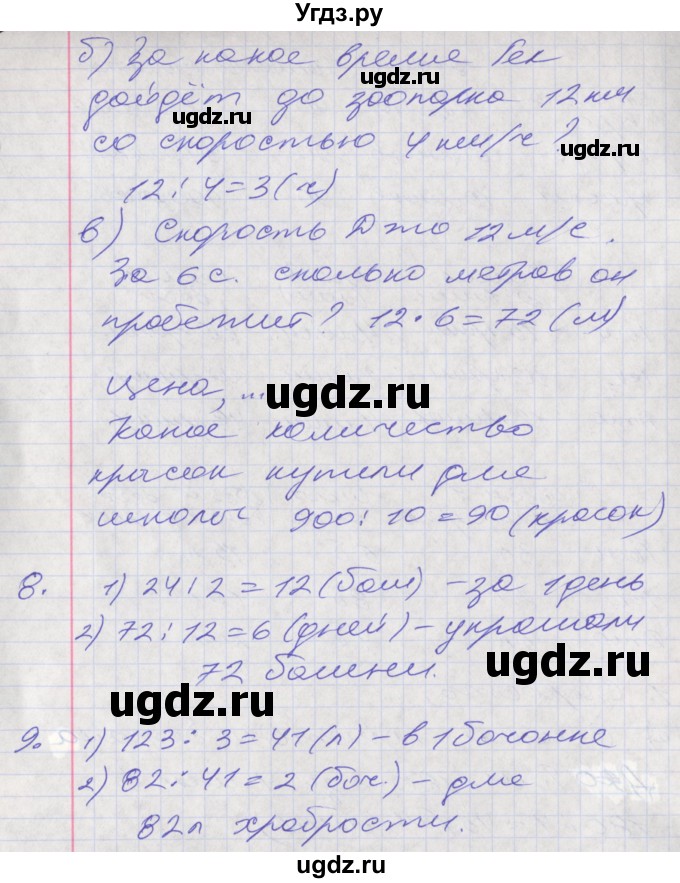 Угдз.ру
б) За какое время Гек
ugdz.ru
дойдёт до зоопарка 12 км
ugdz.ru
со скоростью 4 км/ч?
ugdz.ru
12 : 4 = 3 (ч)
ugdz.ru
в) Скорость Джо 12 м/с.
За 6 с. сколько метров он
ugdz.ru
пробежит? 12 · 6 = 72 (м)
ugdz.ru
Цена, ...
ugdz.ru
Какое количество
красок купили для
ugdz.ru
школы 900 : 10 = 90 (красок)
ugdz.ru
8. 1) 24 : 2 = 12 (баш) – за 1 день
2) 72 : 12 = 6 (дней) – украшали
ugdz.ru
72 башени.
ugdz.ru
9. 1) 123 : 3 = 41 (л) – в 1 бочонке
ugdz.ru
2) 82 : 41 = 2 (боч.) – для
ugdz.ru
82 л храбрости.
ugdz.ru